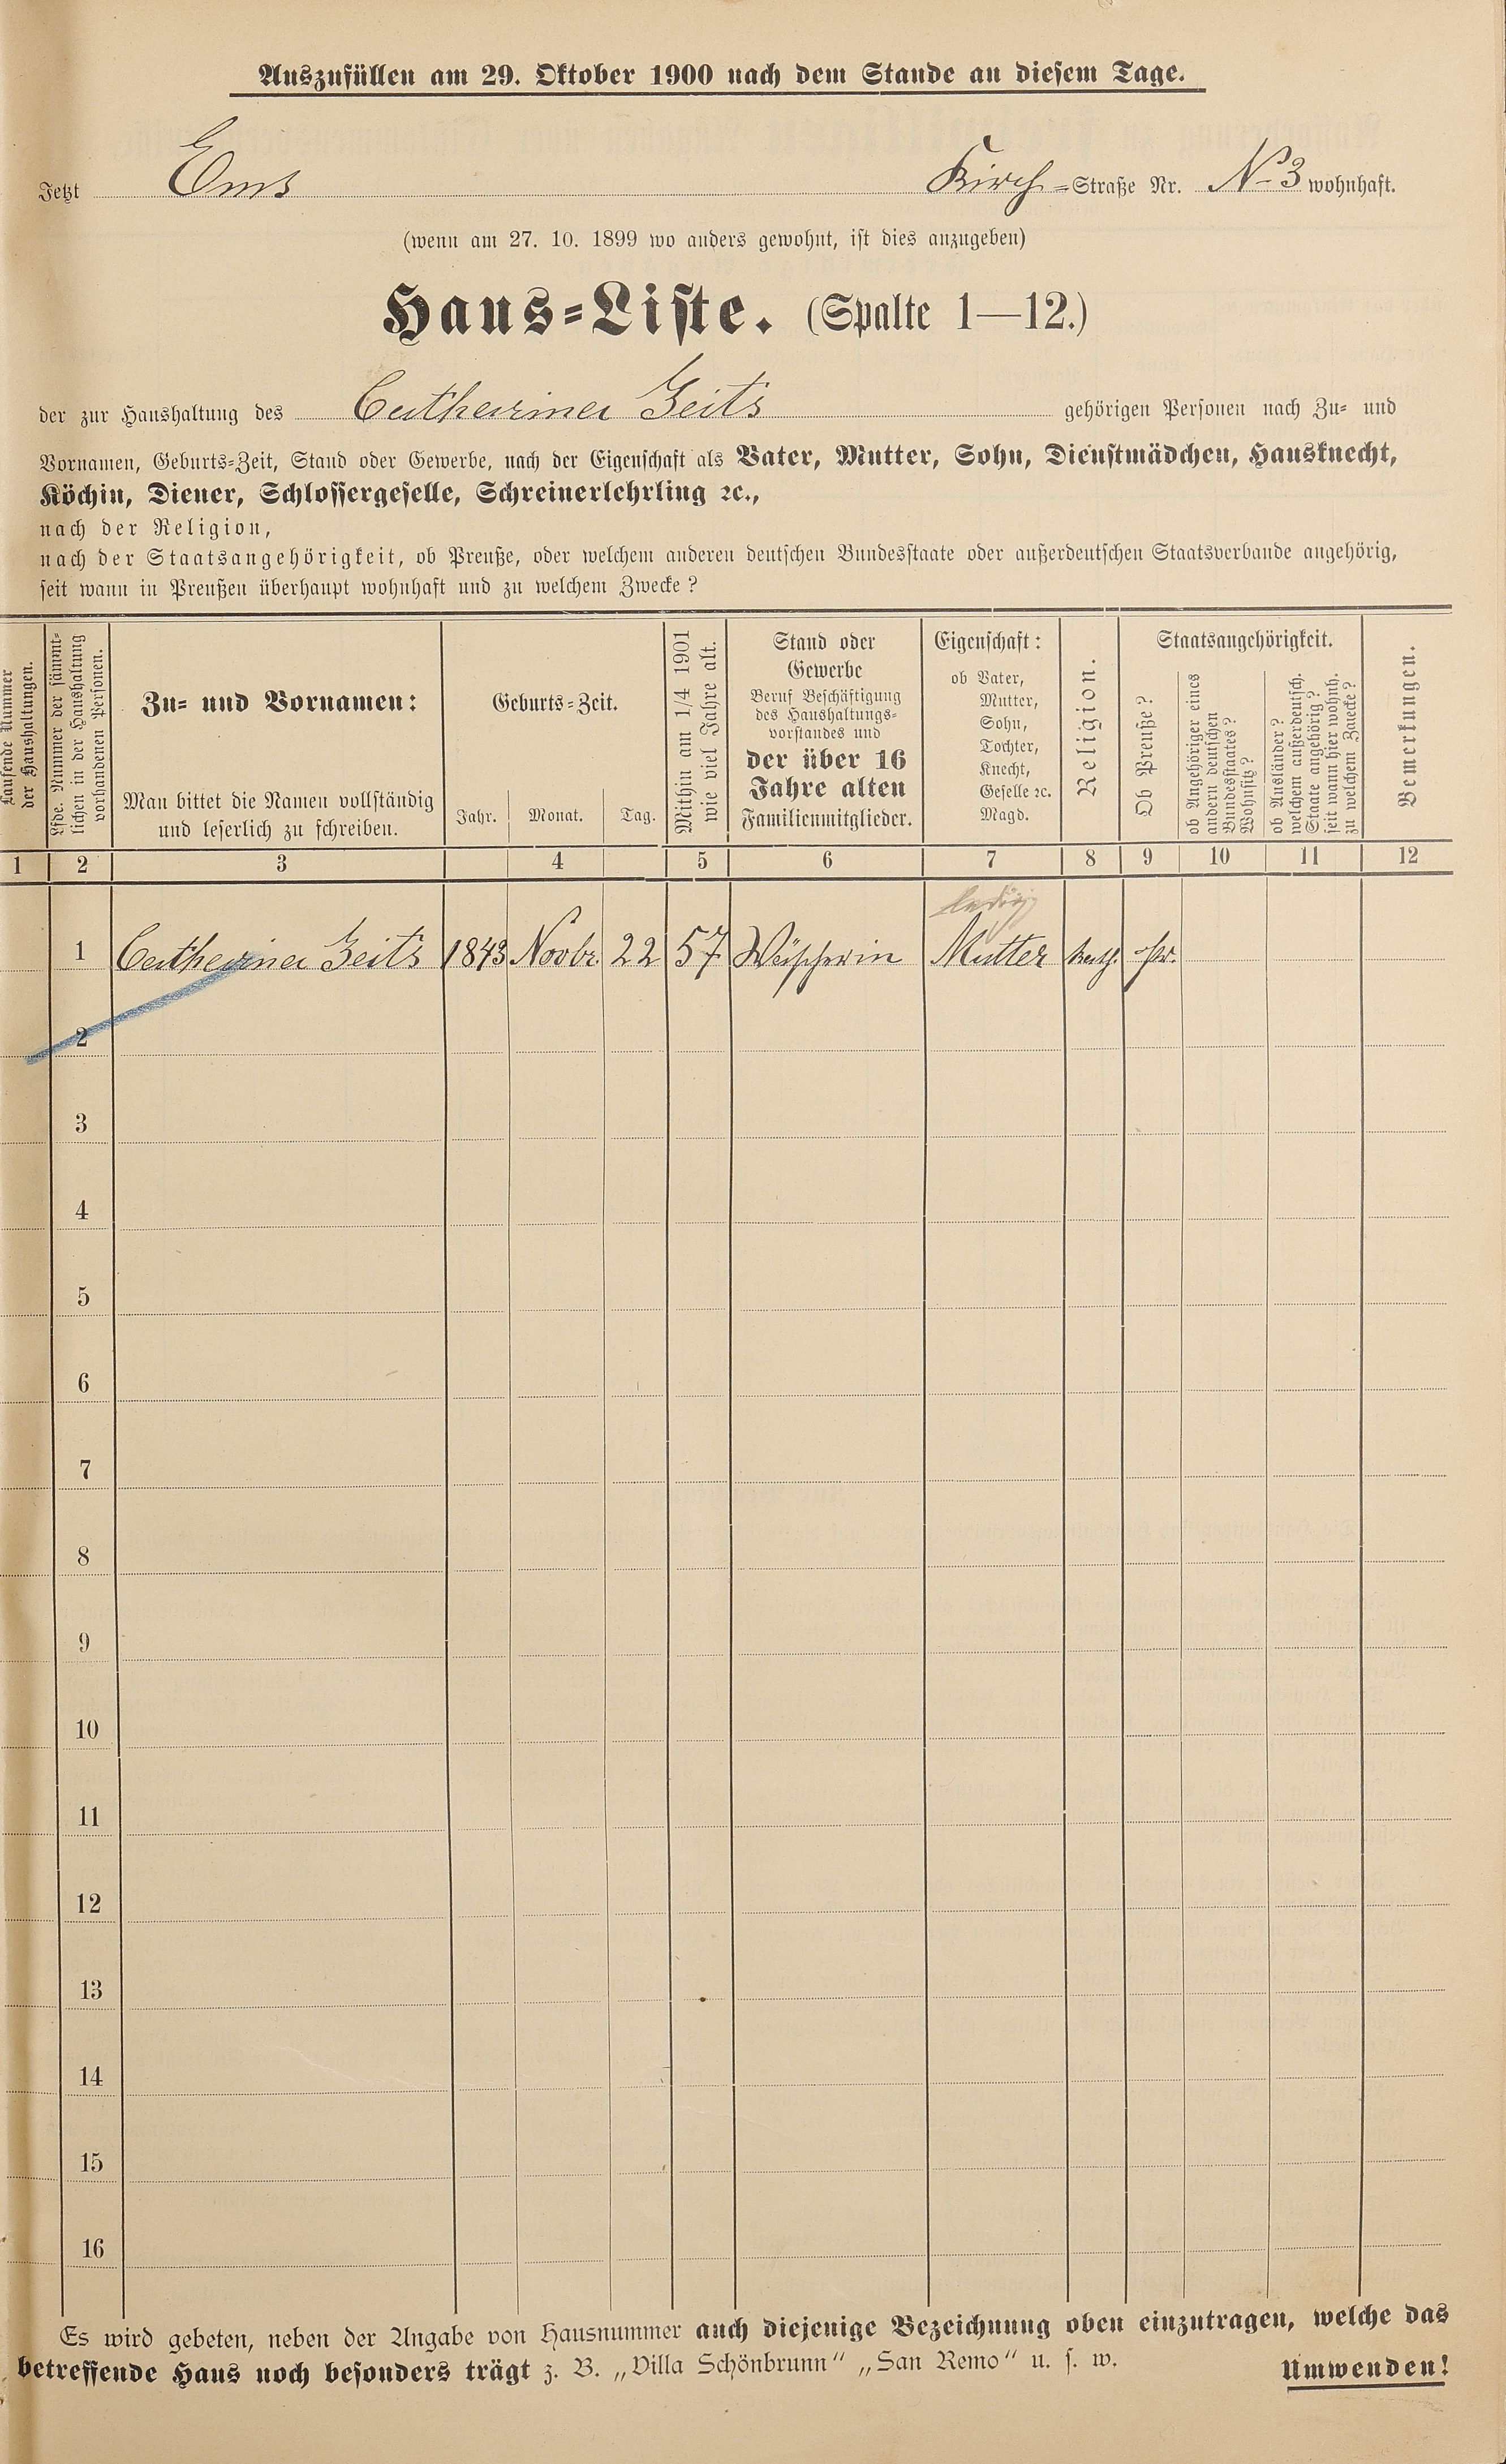 Auszufüllen am 29. Oktober 1900 nach dem Stande an diesem Tage.
Jetzt Ems Kirch-Straße Nr. No 3 wohnhaft.
(wenn am 27. 10. 1899 wo anders gewohnt, ist dies anzugeben)
Haus-Liste. (Spalte 1—12.)
der zur Haushaltung des Catharina Zeits gehörigen Personen nach Zu- und
Vornamen, Geburts-Zeit, Stand oder Gewerbe, nach der Eigenschaft als Vater, Mutter, Sohn, Dienstmädchen, Hausknecht,
Köchin, Diener, Schlossergeselle, Schreinerlehrling ꝛc.,
nach der Religion,
nach der Staatsangehörigkeit, ob Preuße, oder welchem anderen deutschen Bundesstaate oder außerdeutschen Staatsverbande angehörig,
seit wann in Preußen überhaupt wohnhaft und zu welchem Zwecke?
Laufende Nummer
der Haushaltungen.
Lfde. Nummer der sämmt-
lichen in der Haushaltung
vorhandenen Personen.
Zu- und Vornamen:
Man bittet die Namen vollständig
und leserlich zu schreiben.
Geburts-Zeit.
Jahr. Monat. Tag.
Mithin am 1/4 1901
wie viel Jahre alt.
Stand oder
Gewerbe
Beruf Beschäftigung
des Haushaltungs-
vorstandes und
der über 16
Jahre alten
Familienmitglieder.
Eigenschaft:
ob Vater,
Mutter,
Sohn,
Tochter,
Knecht,
Geselle ꝛc.
Magd.
Religion.
Staatsangehörigkeit.
Ob Preuße?
ob Angehöriger eines
andern deutschen
Bundesstaates?
Wohnsitz?
ob Ausländer?
welchem außerdeutsch.
Staate angehörig?
seit wann hier wohnh.
zu welchem Zwecke?
Bemerkungen.
1 2 3 4 5 6 7 8 9 10 11 12
ledig
1 Catharina Zeits 1843 Novbr. 22 57 Wäscherin Mutter kath. pr.
2
3
4
5
6
7
8
9
10
11
12
13
14
15
16
Es wird gebeten, neben der Angabe von Hausnummer auch diejenige Bezeichnung oben einzutragen, welche das
betreffende Haus noch besonders trägt z. B. „Villa Schönbrunn“ „San Remo“ u. s. w.
Umwenden!